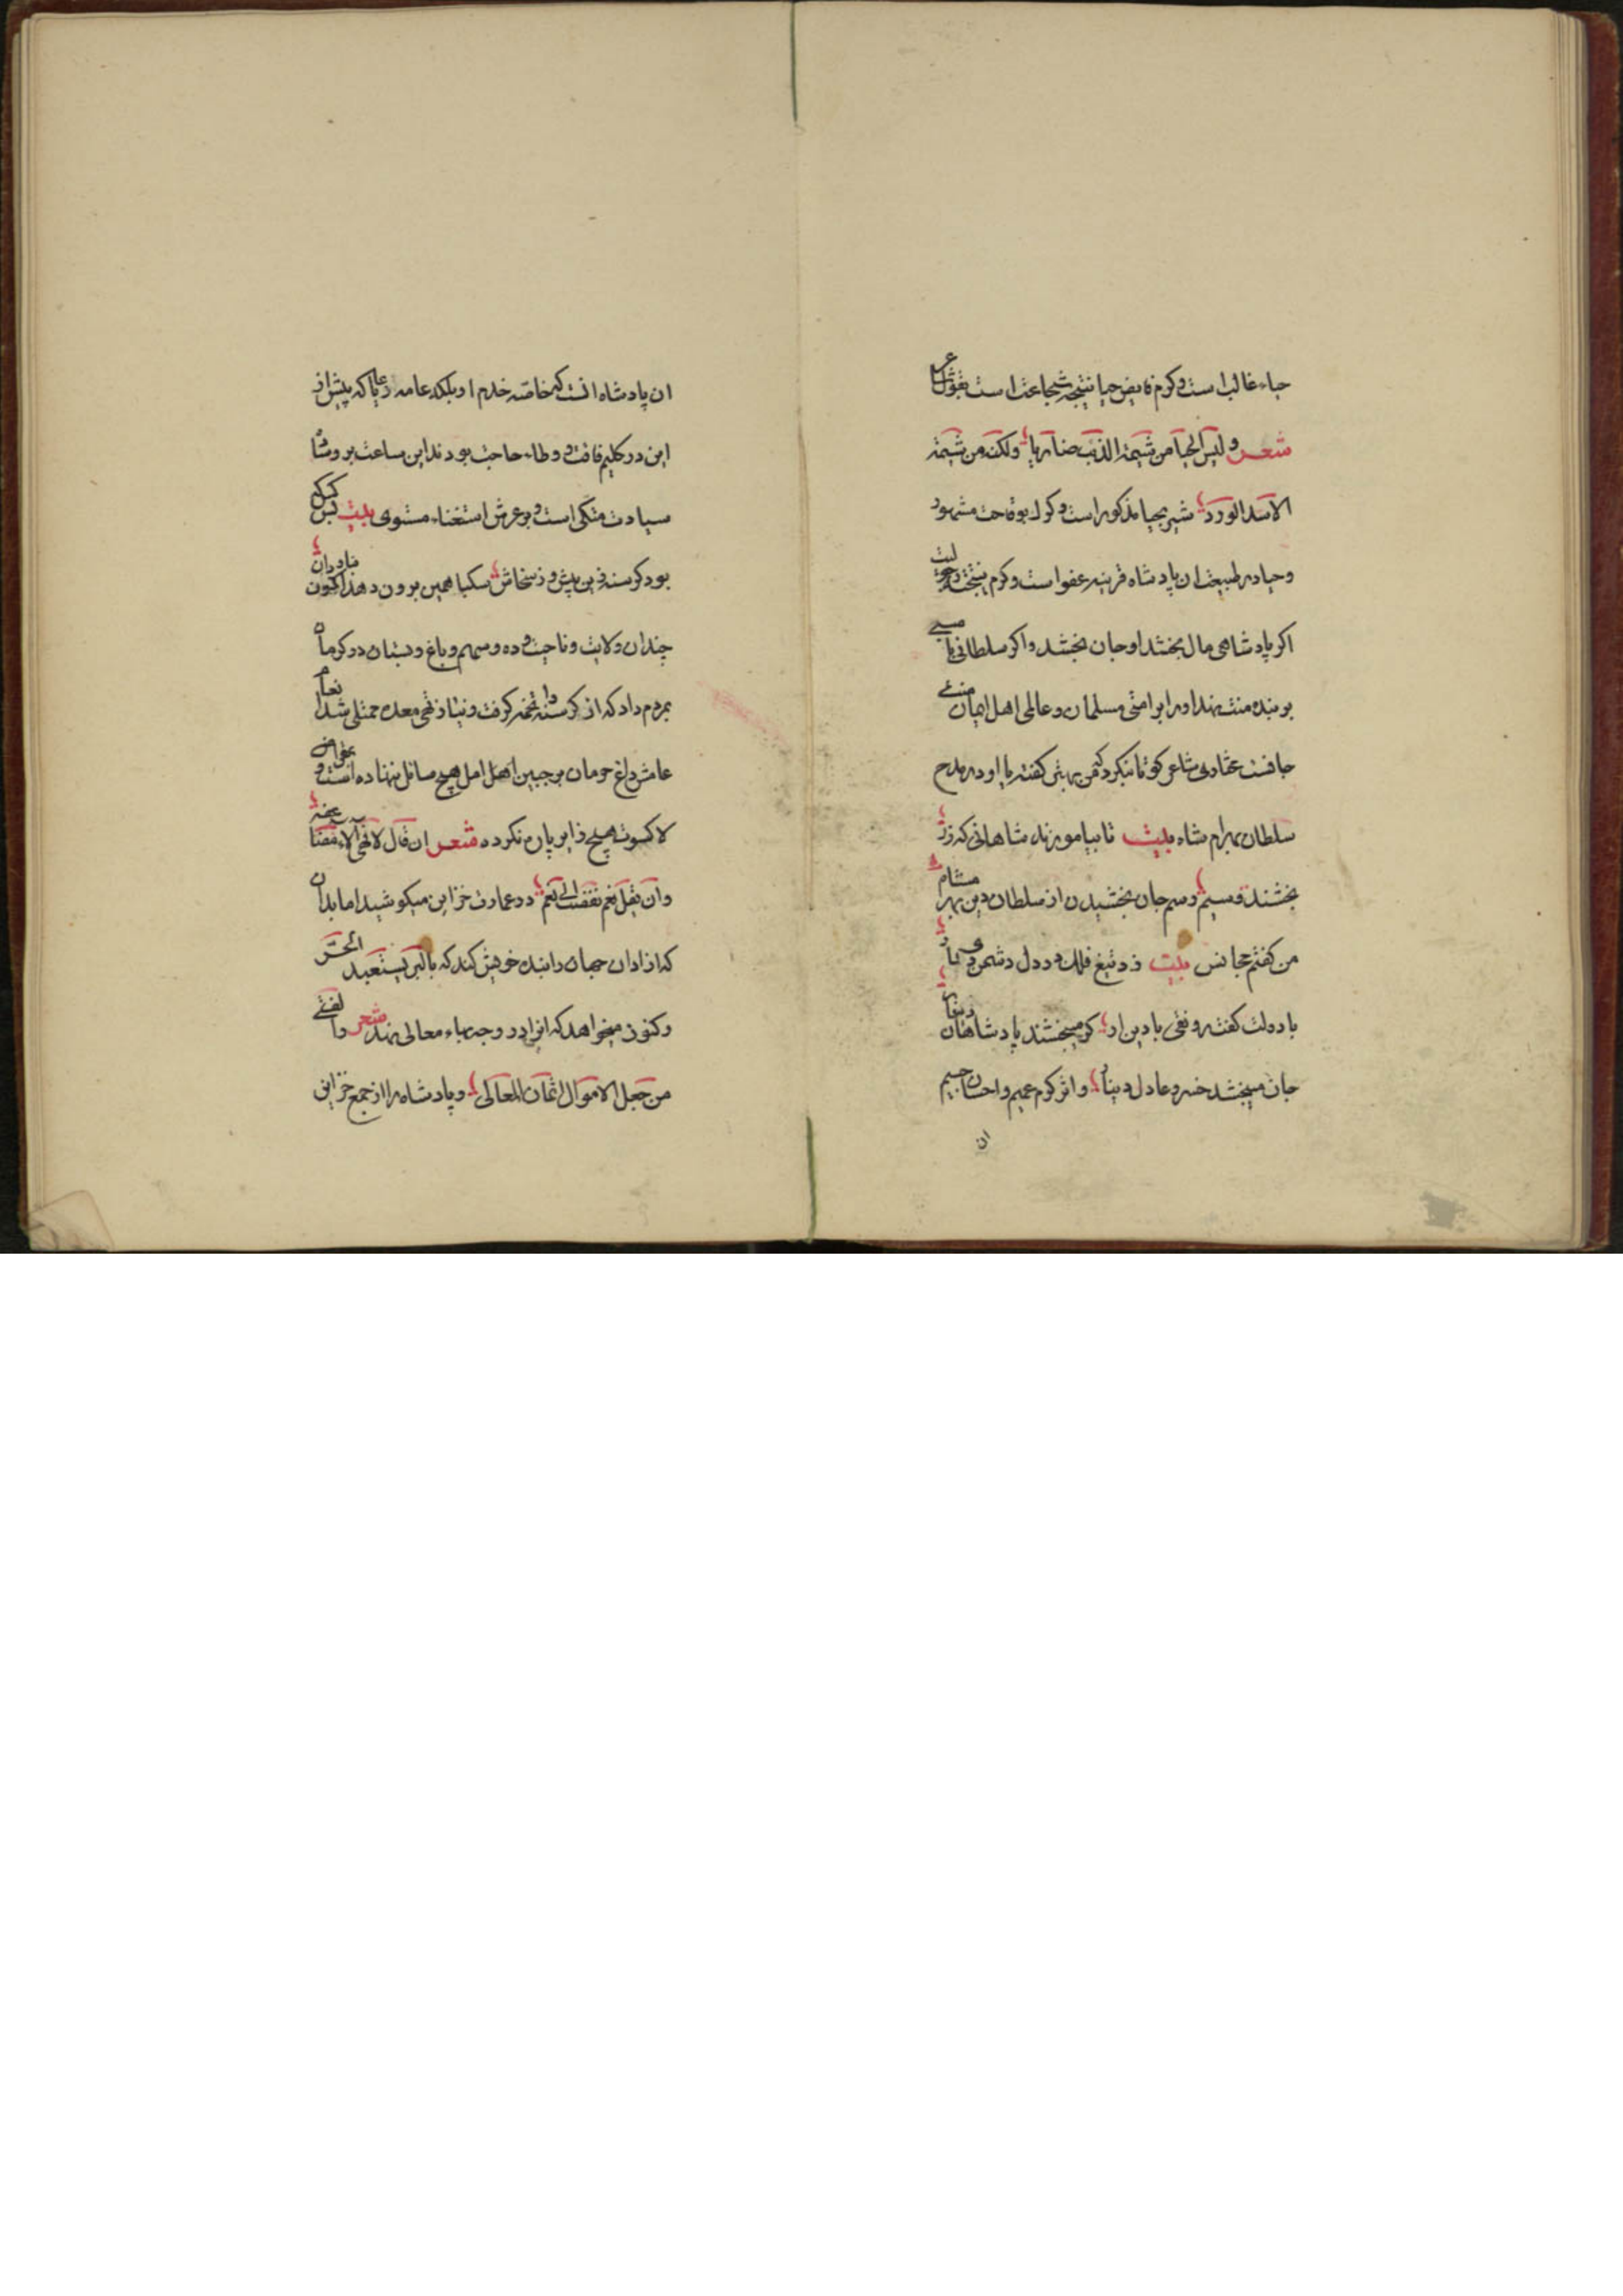 حیاء غالب است و کرم فایض حیا نتیجه شجاعت است بقول
شعر ولیس الحیا من شیمة الذئب ضاریا ولکنه من شیمة
الاسد الورد شیر بحیا مذکور است و کرک بوقاحت مشهور
وحیا در طبیعت ان پادشاه قرینه عفو است وکرم نتیجه
اکر پادشاهی مال بخشد او جان بخشد واکر سلطانی با
بر بنده منت نهد او را بر امتی مسلمان وعالمی اهل ایمان منت
جانست عمادی شاعر کو تا بنکرد که من بهتر کفته‌ام یا او در مدح
سلطان بهرام شاه بیت تا بیاموزند شاهانی که زر
بخشند و سیم رسم جان بخشیدن از سلطان دین بهرام شاه
من کفتم مجانس بیت زد تیغ فلک در دل دشمن
با دولت کفت رونقی با دین ار کر میبخشند پادشاهان دینار
جان میبخشد خسرو عادل دینار و اثر کرم عمیم و احسان جسیم
ان
ان پادشاه انست که خاصه خدم او بلکه عامه رعایا که پیش از
این در کلیم فاقت و وطاء حاجت بودند این ساعت بر وساد
سیادت متکی است و بر عرش استغناء مستوی بیت کس
بود کرسنه زین پیش و ز سخاش سکبا همین برون دهد اکنون
چندان ولایت و ناحیت و ده و سهم و باغ و بستان در کرمان
بمردم داد که از کرسنه را تخمه کرفت و نیاز تهی معده ممتلی شد انعام
عامش داغ حرمان بر جبین اهل امل هیچ سائل ننهاده است و
لا کسوت هیچ زایر پاره نکرده شعر ان قال لا فهی الاء
وان یقل نعم نفضت الی نعم در عمارت خزاین میکوشید اما بدان
که ازادان جهان را بنده خویش کند که بالبر یستعبد الحر
وکنون میخواهد که انرا در وجه بهاء معالی نهد شعر وا لفتی
من جعل الاموال اثمان المعالی و پادشاه را از جمع خزاین